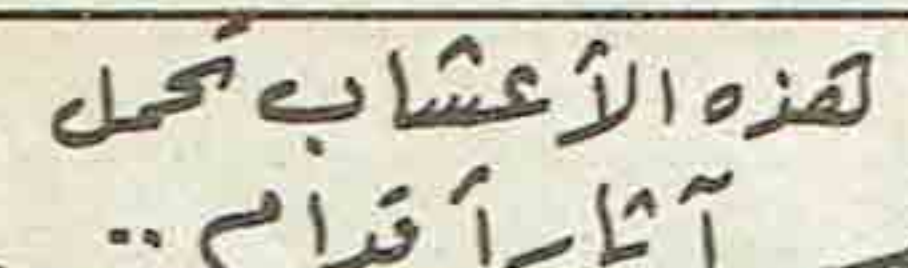 هذه الأعشاب تحمل
آثار أقدام ..